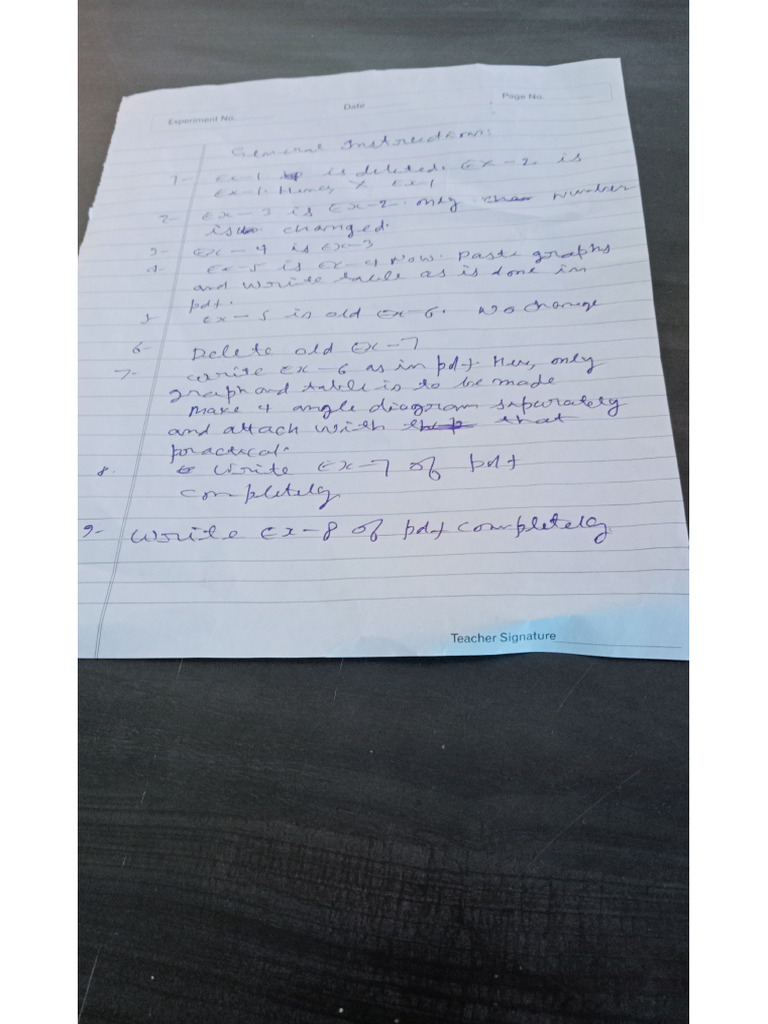 Experiment No.
Date
Page No.
General Instructions:
1- Ex-1 is deleted. Ex-2 is
Ex-1. Hence, Ex-1
2- Ex-3 is Ex-2. only number
is changed.
3- Ex-4 is Ex-3
4- Ex-5 is Ex-4 Now. Paste graphs
and write table as is done in
pdf.
5- Ex-5 is old Ex-6. No change
6- Delete old Ex-7
7- Write Ex-6 as in pdf. Here, only
graph and table is to be made
Make 4 angle diagram separately
and attach with that
practical.
8. Write Ex-7 of pdf
completely
9- Write Ex-8 of pdf completely
Teacher Signature